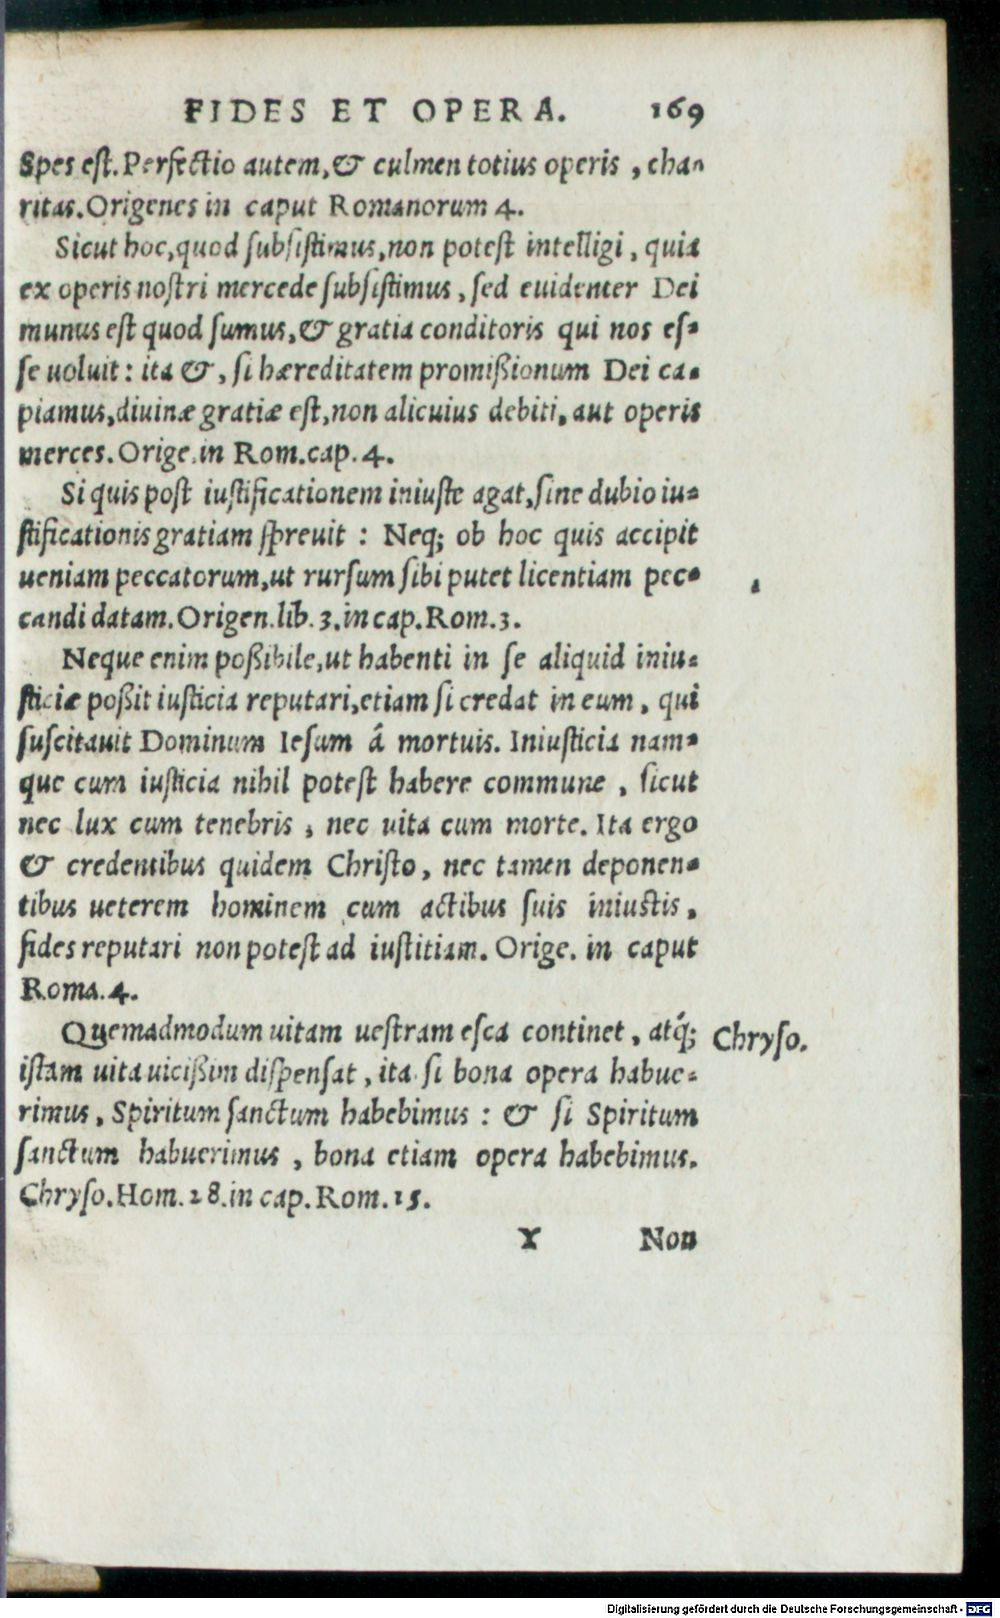 FIDES ET OPERA. 169
Spes est. Perfectio autem, & culmen totius operis, cha-
ritas. Origenes in caput Romanorum 4.
Sicut hoc, quod subsistimus, non potest intelligi, quia
ex operis nostri mercede subsistimus, sed euidenter Dei
munus est quod sumus, & gratia conditoris qui nos es-
se uoluit: ita &, si hæreditatem promißionum Dei ca-
piamus, diuinæ gratiæ est, non alicuius debiti, aut operis
merces. Orige. in Rom. cap. 4.
Si quis post iustificationem iniuste agat, sine dubio iu-
stificationis gratiam spreuit: Neq; ob hoc quis accipit
ueniam peccatorum, ut rursum sibi putet licentiam pec-
candi datam. Origen. lib. 3. in cap. Rom. 3.
Neque enim poßibile, ut habenti in se aliquid iniu-
sticiæ poßit iusticia reputari, etiam si credat in eum, qui
suscitauit Dominum Iesum á mortuis. Iniusticia nam-
que cum iusticia nihil potest habere commune, sicut
nec lux cum tenebris, nec uita cum morte. Ita ergo
& credentibus quidem Christo, nec tamen deponen-
tibus ueterem hominem cum actibus suis iniustis,
fides reputari non potest ad iustitiam. Orige. in caput
Roma. 4.
Quemadmodum uitam uestram esca continet, atq́;
Chryso.
istam uita uicißim dispensat, ita si bona opera habue-
rimus, Spiritum sanctum habebimus: & si Spiritum
sanctum habuerimus, bona etiam opera habebimus.
Chryso. Hom. 28. in cap. Rom. 15.
Y Non
Digitalisierung gefördert durch die Deutsche Forschungsgemeinschaft - DFG